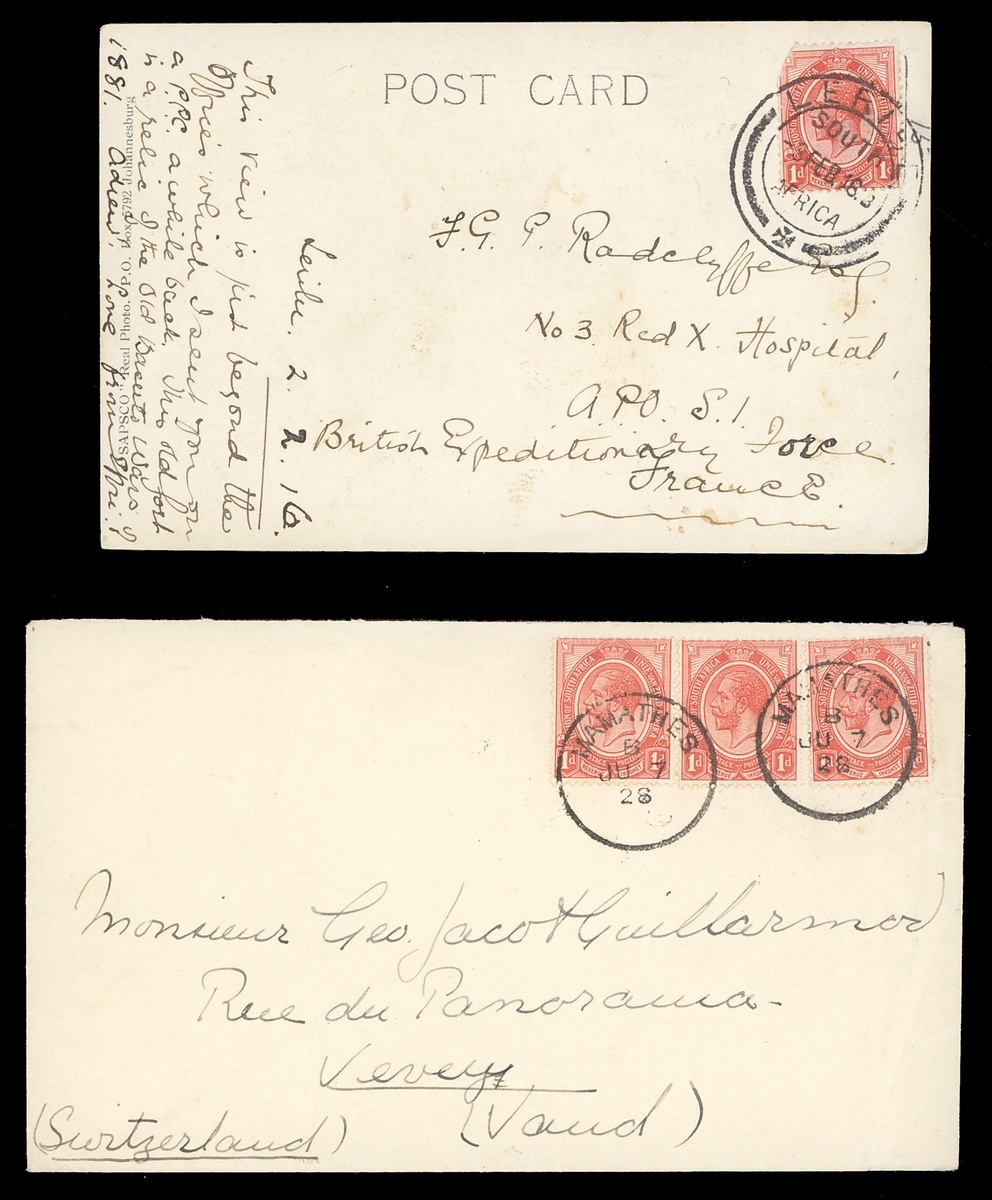 POST CARD
This view is just beyond the
Office which I sent you on
a P.P.C. a while back. This old fort
is a relic of the old Basuto Wars of
1881. Adieu. Love from
SAPSCO Real Photo. P.O. Box 5792 Johannesburg
Leribe. 2. 2. 16.
SOUTH
AFRICA
1d 1d
F. G. G. Radclyffe Esq.
No 3 Red X. Hospital,
A.P.O. S.1.
British Expeditionary Force
France.
MAMATHES
B
JU 7
28
MAMATHES
B
JU 7
28
1d 1d
1d 1d
1d 1d
Monsieur Geo. Jacot Guillarmod
Rue du Panorama
Vevey
(Vaud)
(Switzerland)